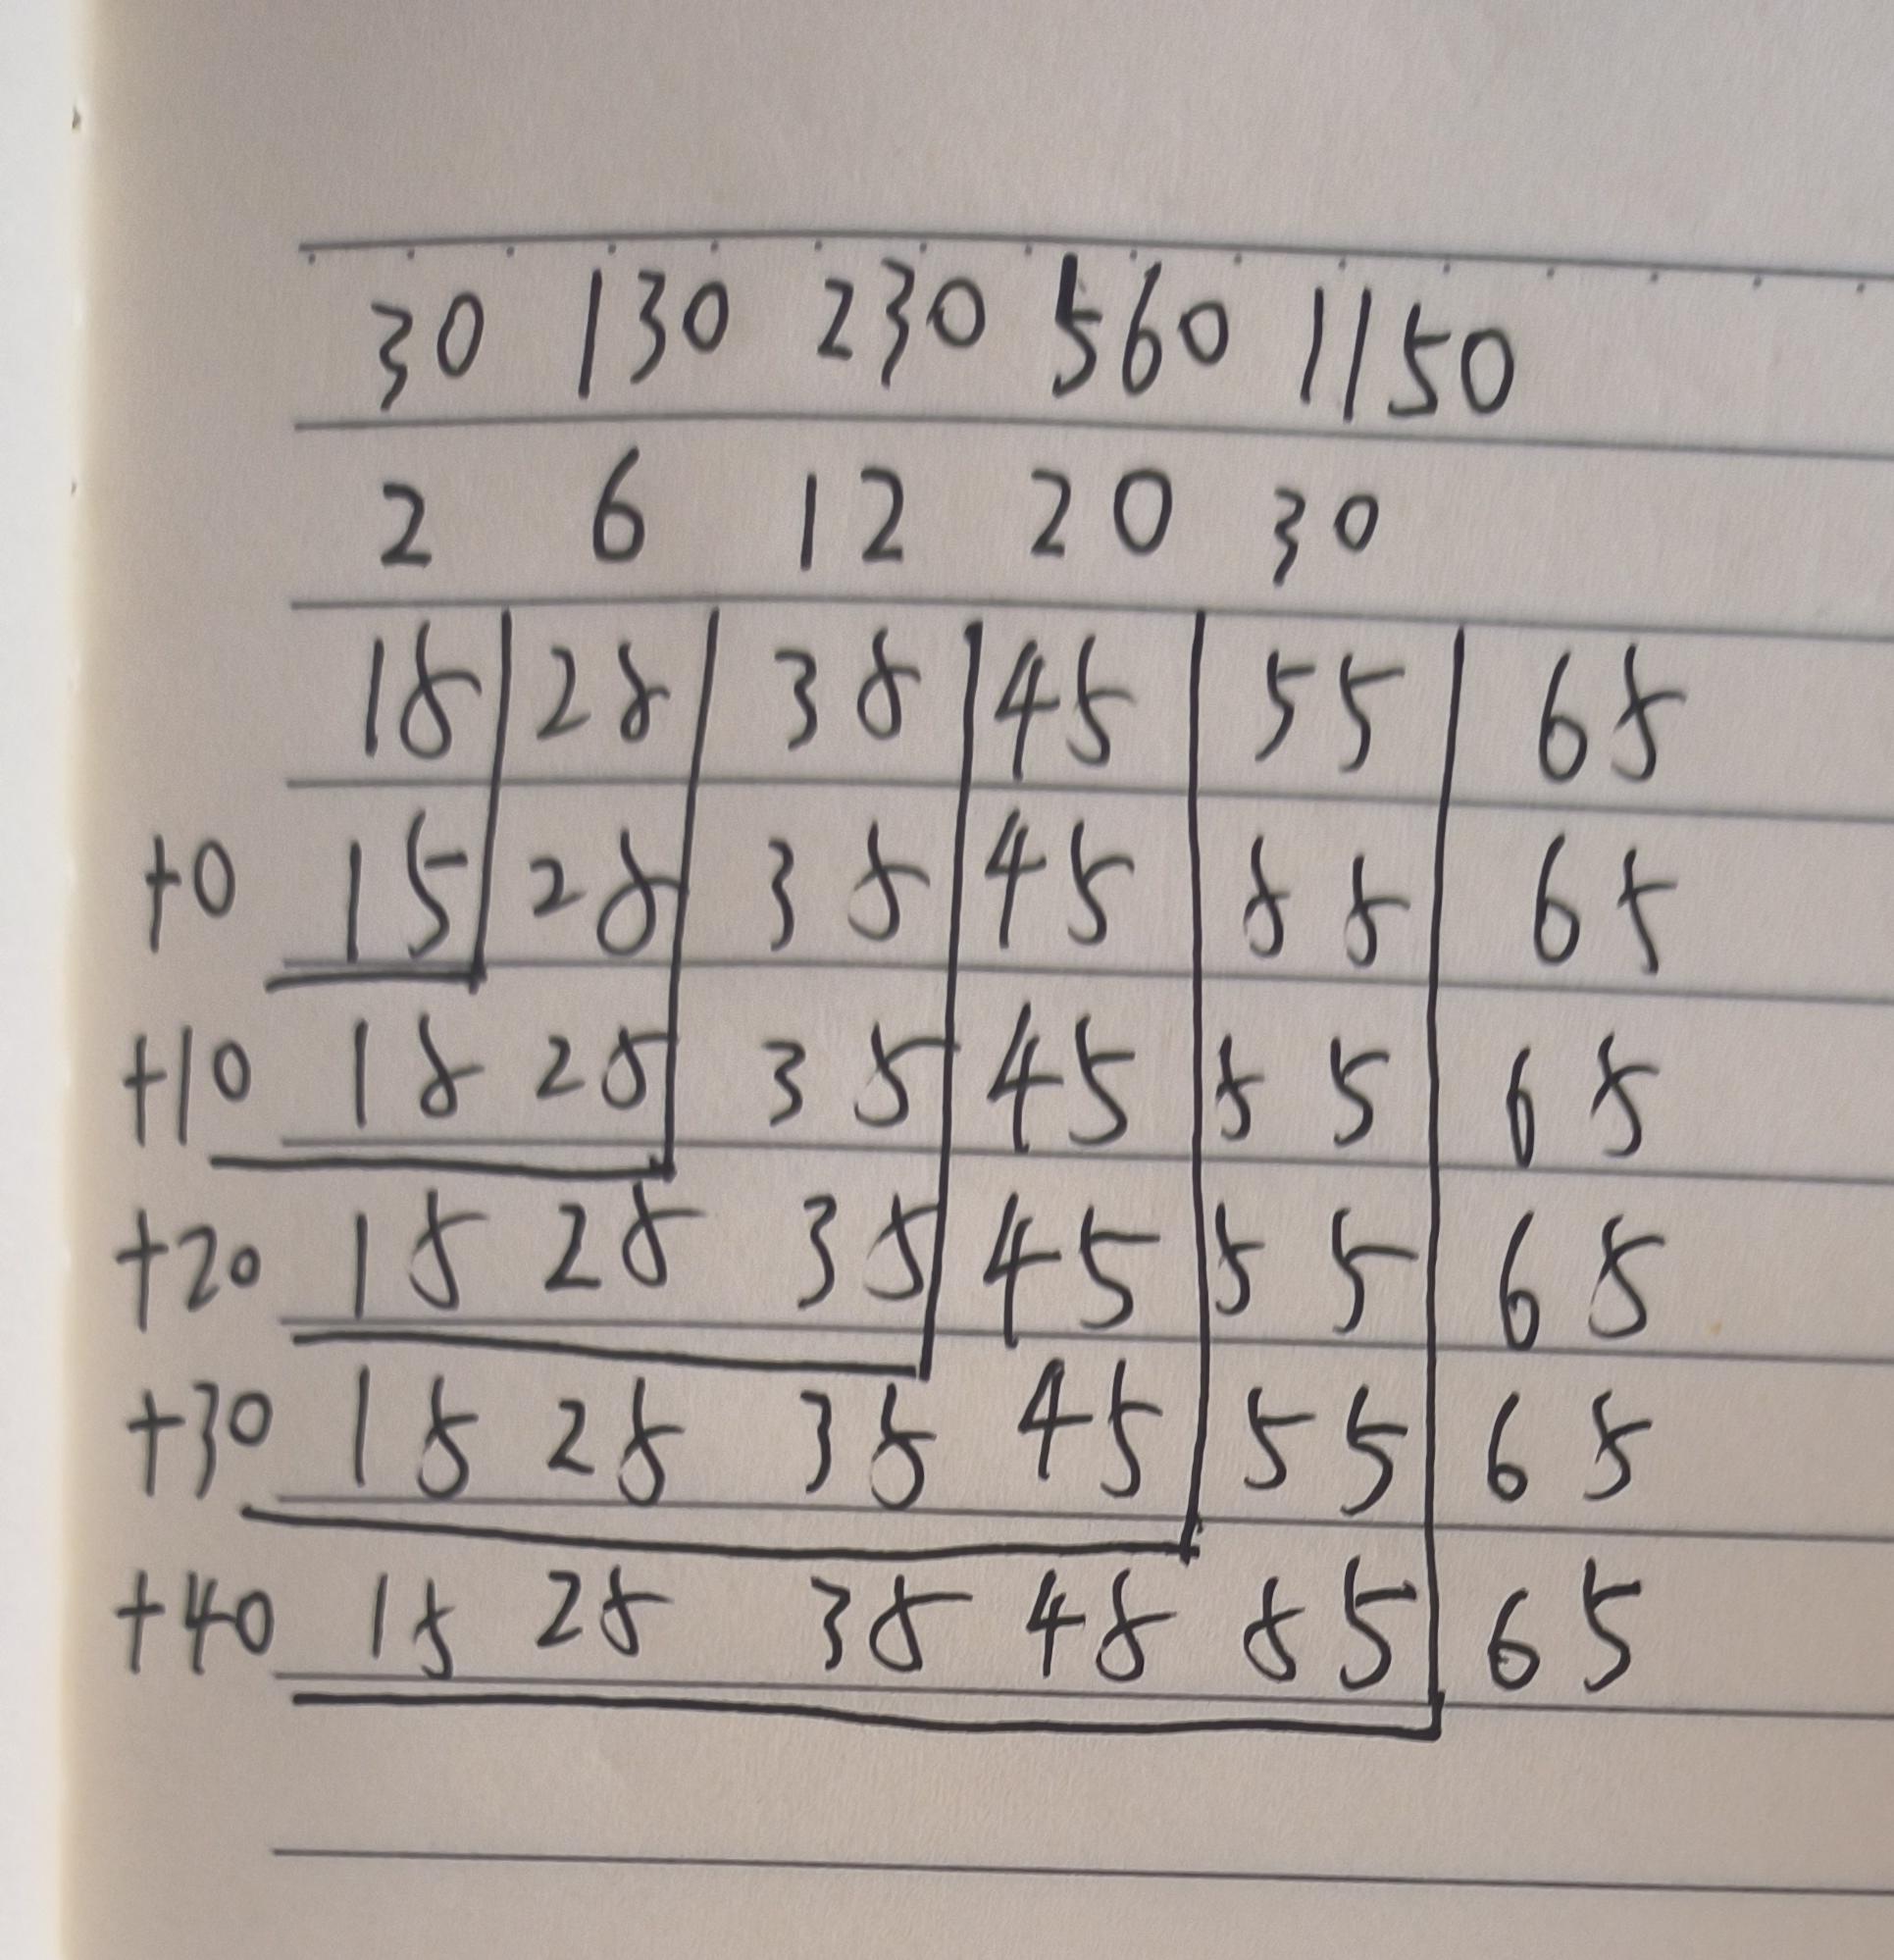 30 130 230 560 1150
2 6 12 20 30
15 25 35 45 55 65
+0 15 25 35 45 55 65
+10 15 25 35 45 55 65
+20 15 25 35 45 55 65
+30 15 25 35 45 55 65
+40 15 25 35 45 55 65